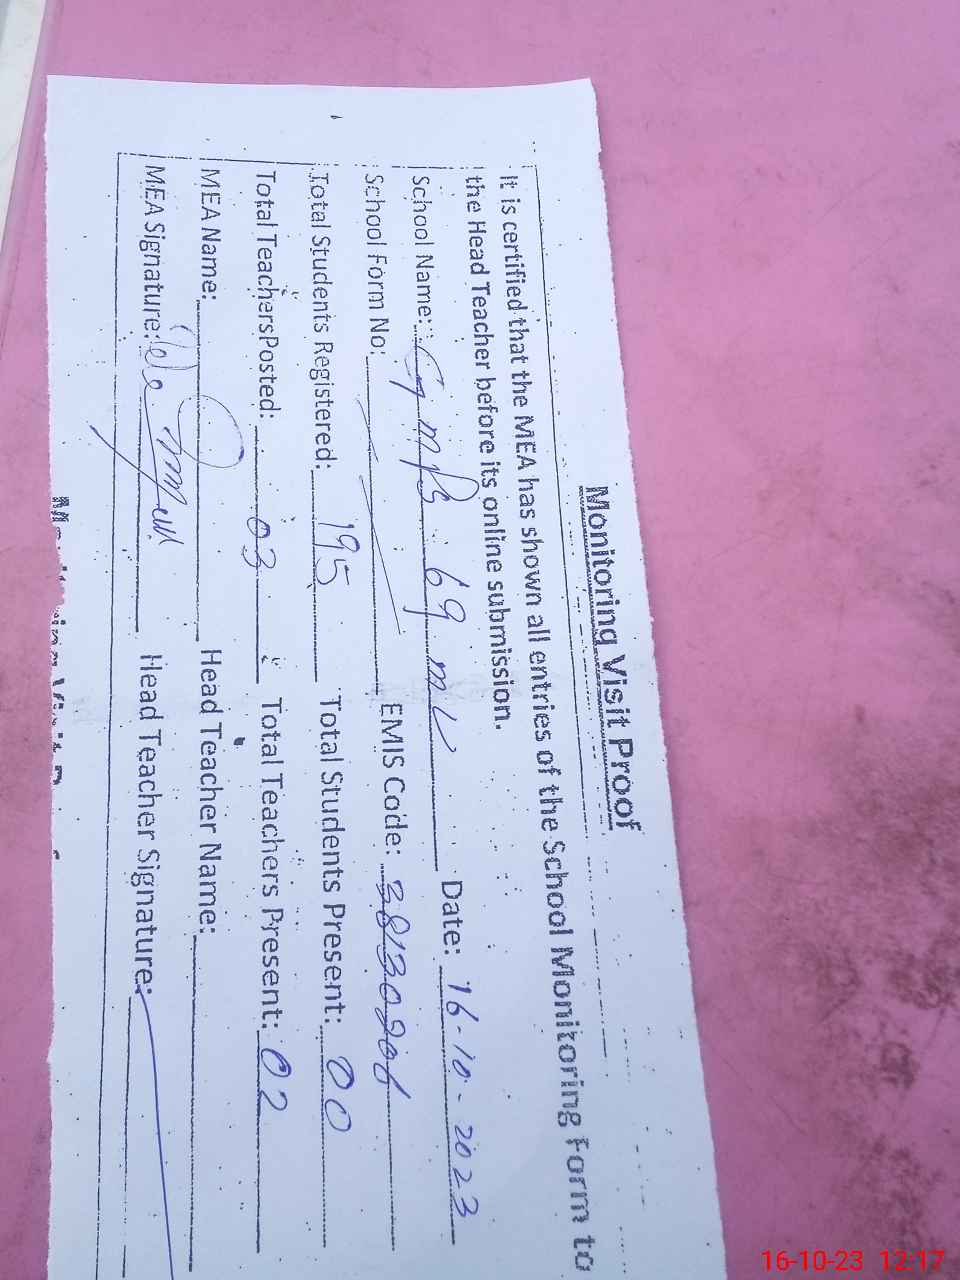 Monitoring Visit Proof
It is certified that the MEA has shown all entries of the School Monitoring Form to
the Head Teacher before its online submission.
School Name: GMPS 69 ML Date: 16-10-2023
School Form No: EMIS Code:
Total Students Registered: 195 Total Students Present: 00
Total Teachers Posted: 03 Total Teachers Present: 02
MEA Name: Head Teacher Name:
MEA Signature: Head Teacher Signature:
16-10-23 12:17